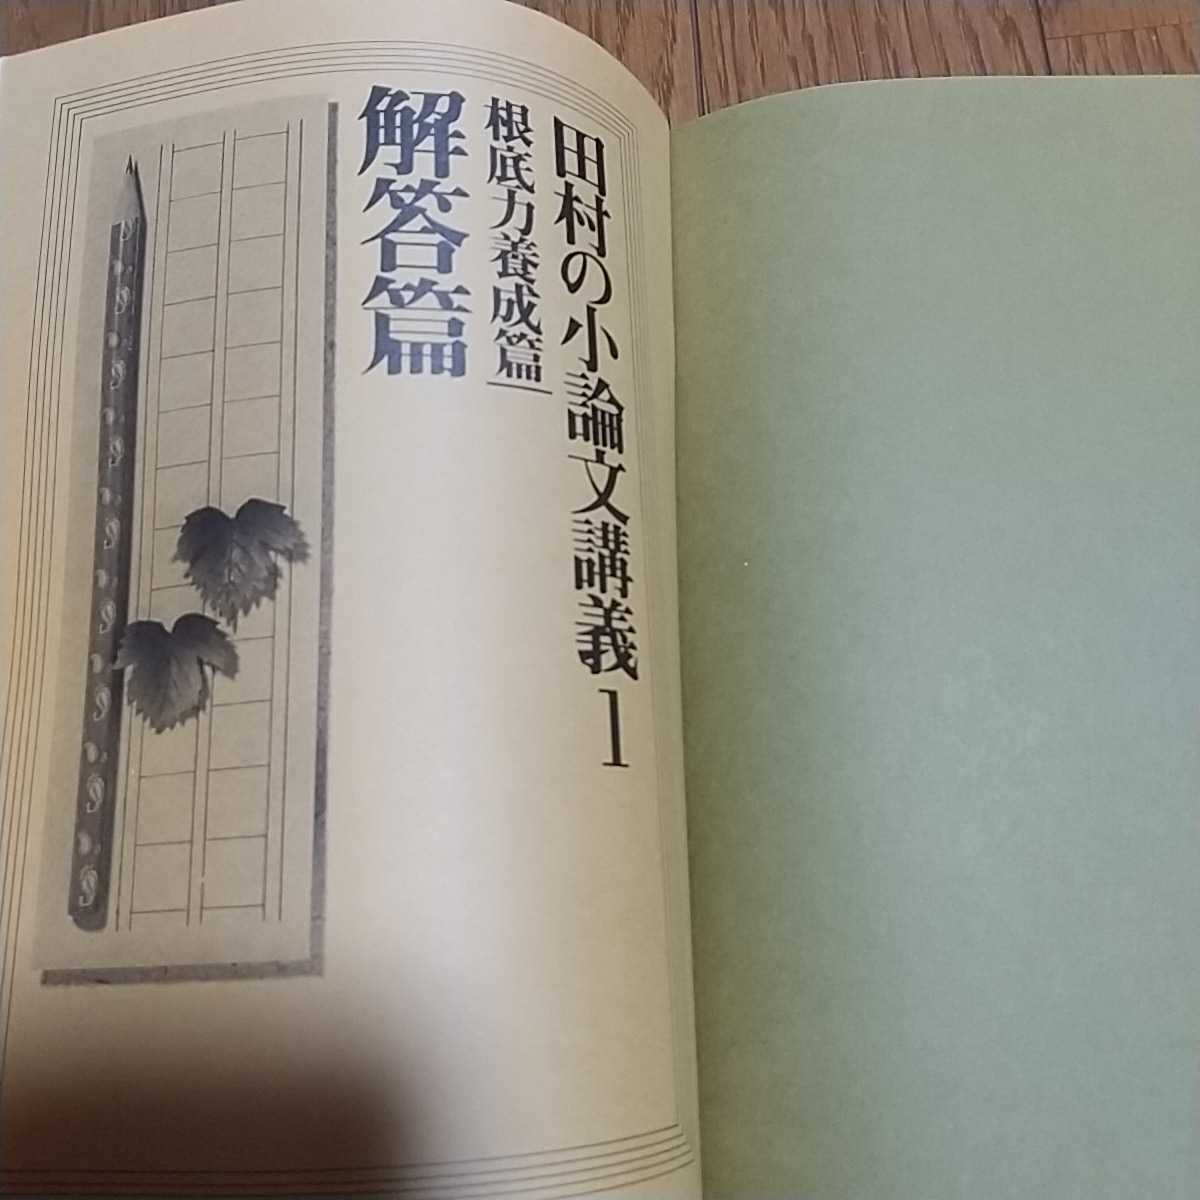 田村の小論文講義1
根底力養成篇
解答篇